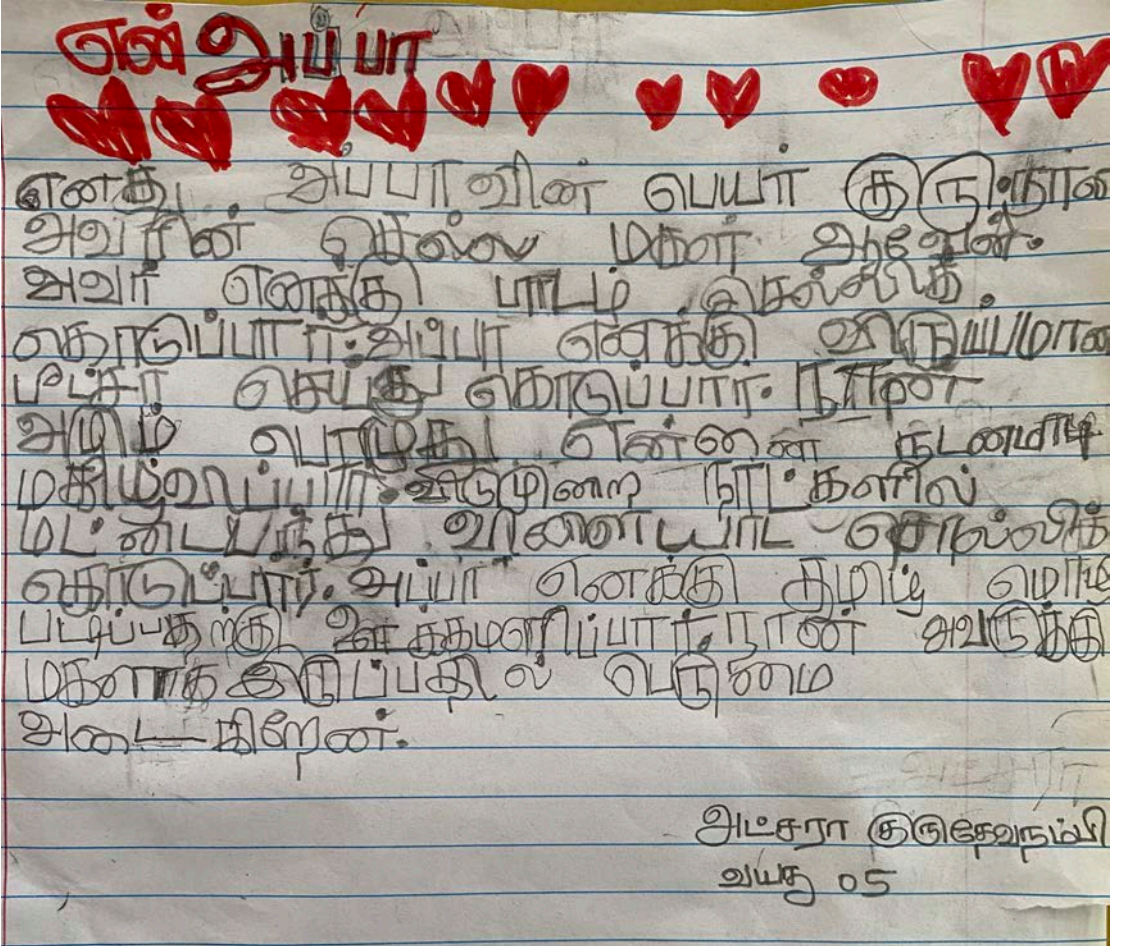 என் அப்பா
எனது அப்பாவின் பெயர் குரு. நான்
அவரின் செல்ல மகள் ஆவேன்.
அவர் எனக்கு பாடம் செல்லித்
தொடுப்பார். அப்பா எனக்கு விருப்பமான
பீட்சா செய்து கொடுப்பார். நான்
அழும் பொழுது என்னை நடனமாடி
மகிழ்வைப்பார். விடுமுறை நாட்களில்
மட்டைப்பந்து விளையாட சொல்லிக்
கொடுப்பார். அப்பா எனக்கு தமிழ் மொழி
படிப்பதற்கு ஊக்கமளிப்பார். நான் அவருக்கு
மகளாக இருப்பதில் பெருமை
அடைகிறேன்.
அட்சரா குருதேவநம்பி
வயது 05